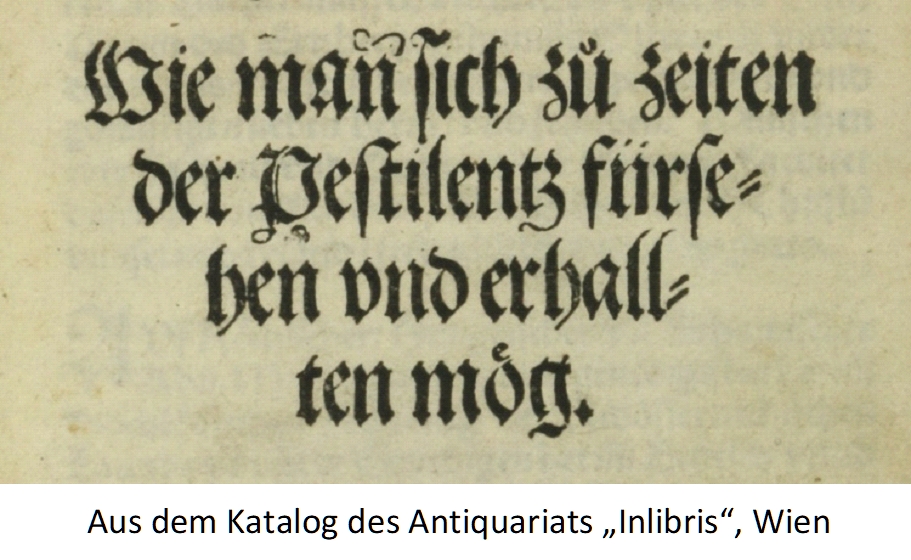 Wie man sich zů zeiten
der Pestilentz fürse⸗
hen vnd erhall⸗
ten moͤg.
Aus dem Katalog des Antiquariats „Inlibris“, Wien